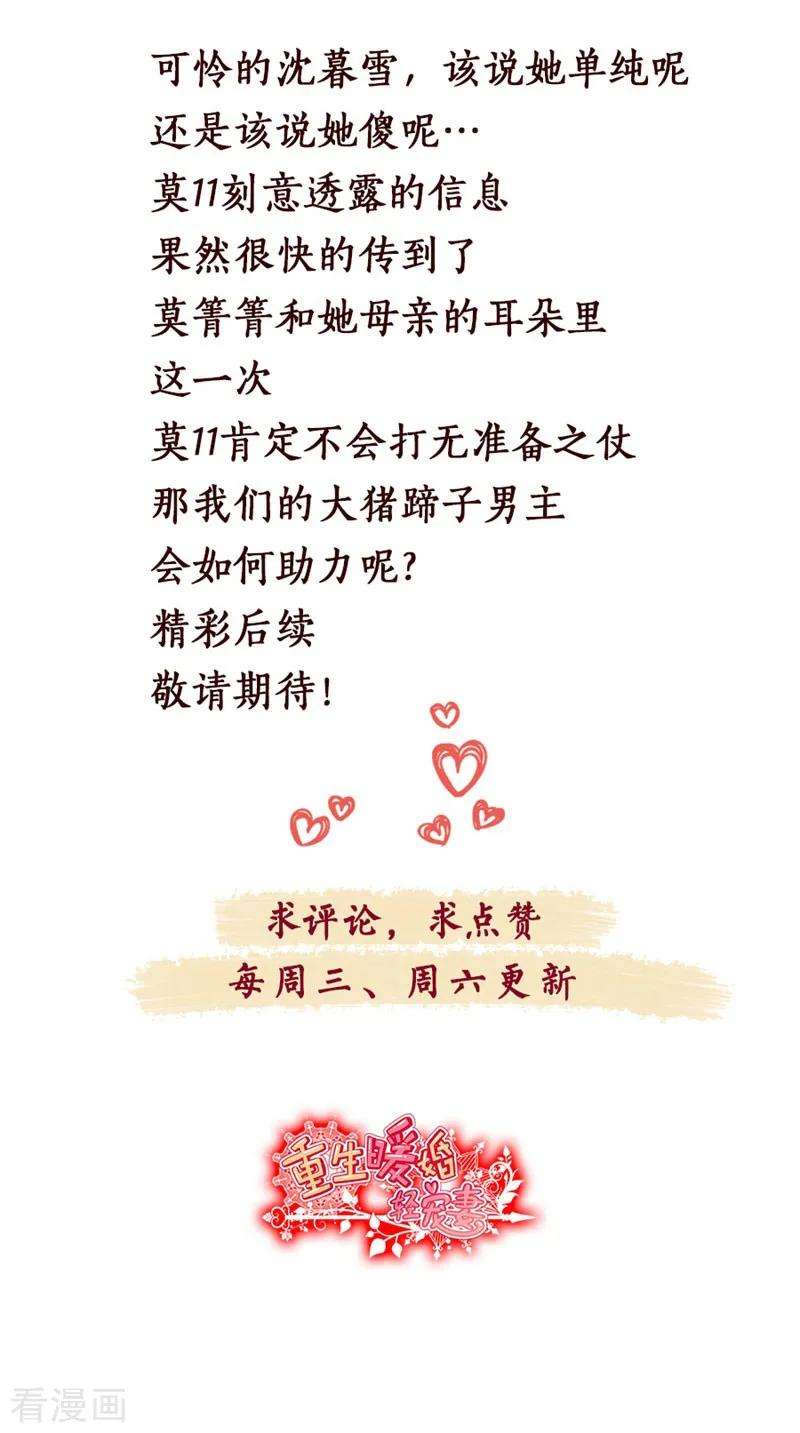 可怜的沈暮雪，该说她单纯呢
还是该说她傻呢…
莫11刻意透露的信息
果然很快的传到了
莫箐箐和她母亲的耳朵里
这一次
莫11肯定不会打无准备之仗
那我们的大猪蹄子男主
会如何助力呢?
精彩后续
敬请期待!
求评论，求点赞
每周三、周六更新
重生暖婚
轻宠妻
看漫画